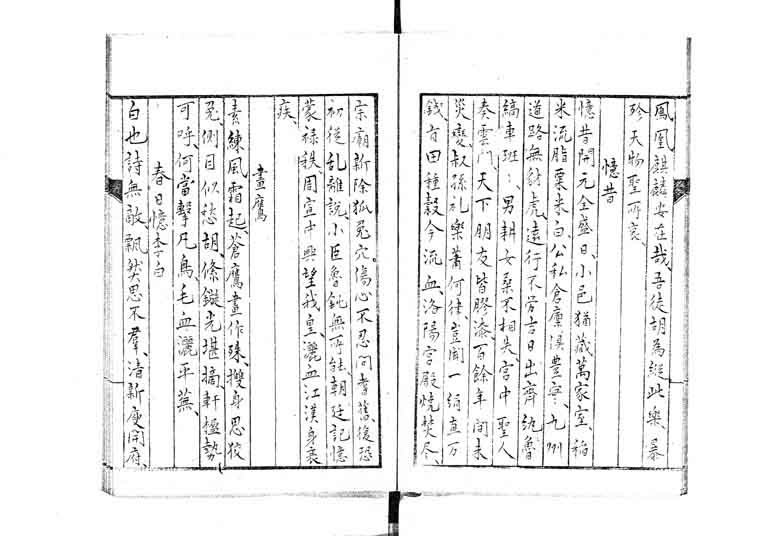 鳳凰麒麟安在哉、吾徒胡為縱此樂、暴
殄天物聖所哀
憶昔
憶昔開元全盛日、小邑猶藏萬家室、稻
米流脂粟米白、公私倉廩俱豊實、九州
道路無豺虎、遠行不労吉日出、齊紈魯
縞車班〻、男耕女桑不相失、宮中聖人
奏雲門、天下朋友皆膠漆、百餘年間未
災變、叔孫礼樂蕭何律、豈聞一絹直万
錢、有田種穀今流血、洛陽宮殿焼焚尽、
宗廟新除狐兔穴。傷心不忍問耆舊、復恐
初從乱離說、小臣魯鈍無所能、朝廷記憶
蒙禄秩、周宣中興望我皇、灑血江漢身衰
疾、
畫鷹
素練風霜起、蒼鷹畫作殊、㩳身思狡
兔、側目似愁胡、絛鏇光堪摘、軒楹勢
可呼、何當擊凡鳥、毛血灑平蕪、
春日憶李白
白也詩無敵、飄然思不羣、清新庾開府、